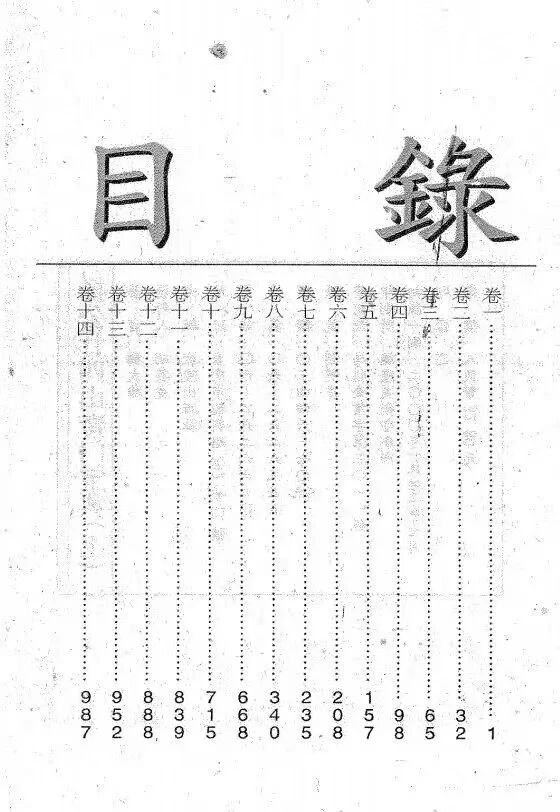 目錄
卷一 1
卷二 32
卷三 65
卷四 98
卷五 157
卷六 208
卷七 235
卷八 340
卷九 668
卷十 715
卷十一 839
卷十二 888
卷十三 952
卷十四 987